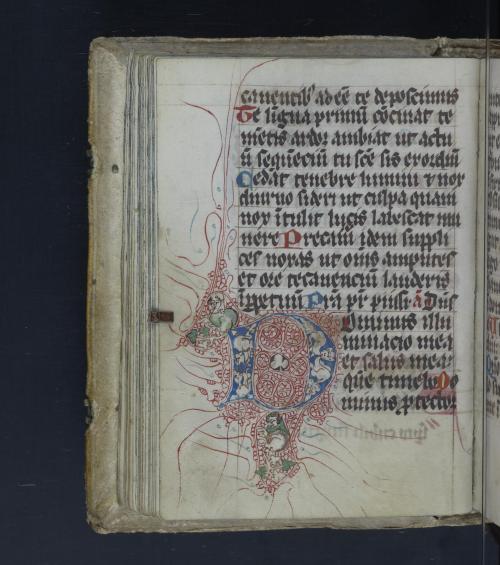 canentib' adēē te deposcimus
Te līgua primū cōcinat te
mētis ardor ambiat ut actu
ū sequēciū tu scē sis exordiū
Cedāt tenebre lumini ⁊ nox
diurno sideri ut culpa quam
nox ītulit lucis labescat mu
nere Precamur idem suppli
ces noxas ut om̄s amputes
et ore te canencium lauderis
īppetuū Pr̄a pr̄ piissi a Dn̄s
Dominus illu
minacio mea
et salus mea:
quē timebo Do
minus ꝓtector